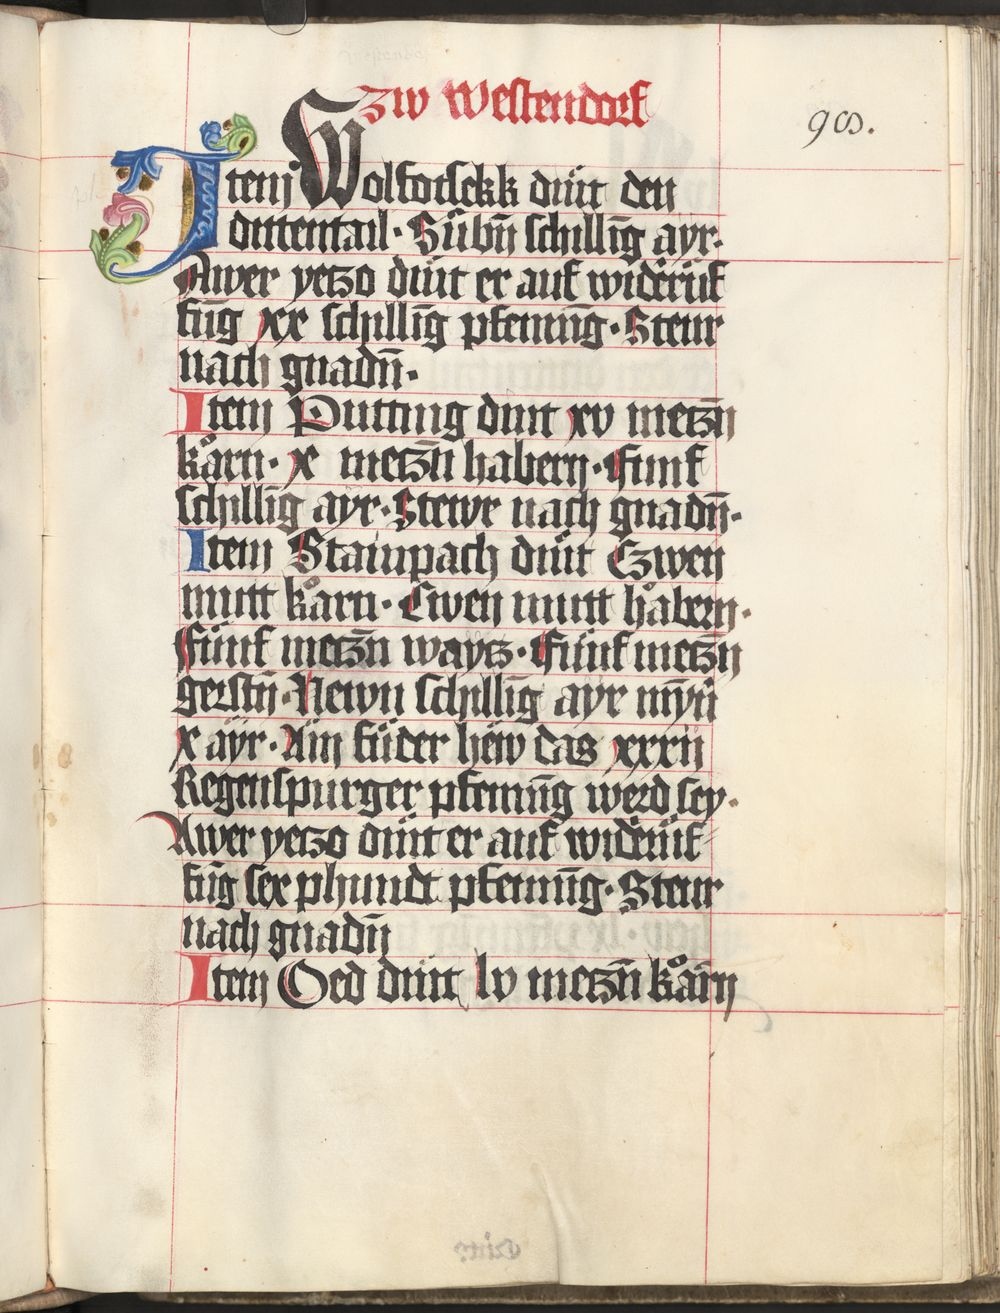 Zw Westendorf
90.
Item Wolfotsekk dint den
drittentail · Sübn̄ schilling̅ ayr·
Awer yetzo dint er auf widerüf
fūg xx schilling̅ pfenning̅ · Steur
nach gnadn̄ ·
Item Putting dint xv metzn̄
kårn · x metzn̄ habern · Funf
schilling̅ ayr · Stewr nach gnadn̄ ·
Item Stainpach dint Czwen
mutt kårn · Cwen mutt håbern ·
Fünf metzn̄ waytz · Fünf metzn̄
gerstn̄ · Newn schilling̅ ayr mȳn̄
x ayr · Ain füder hëw das xxxii
Regenspurger pfenning̅ werd sey ·
Awer yetzo dint er auf widerüf
fūg sex phundt pfenning̅ · Steur
nach gnadn̄
Item Oed dint lv metzn̄ kårn